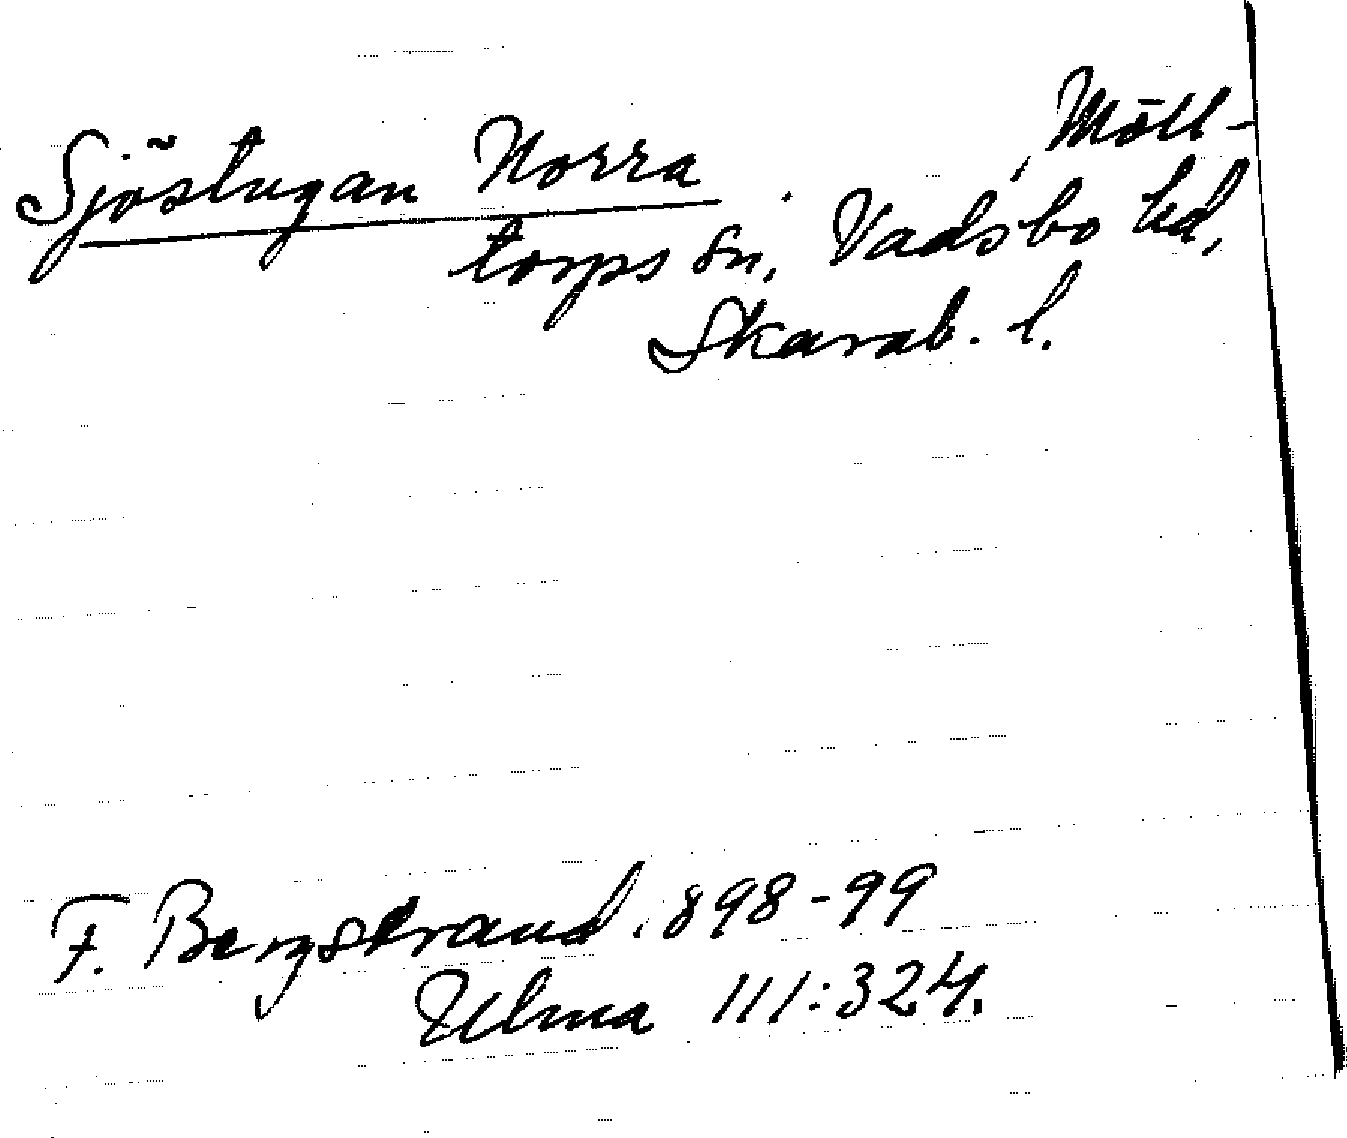 Sjöstugan Norra, Möll-
torps sn, Vadsbo hd,
Skarab. l.
F. Bergstrand 1898-99
Ulma 111:324.